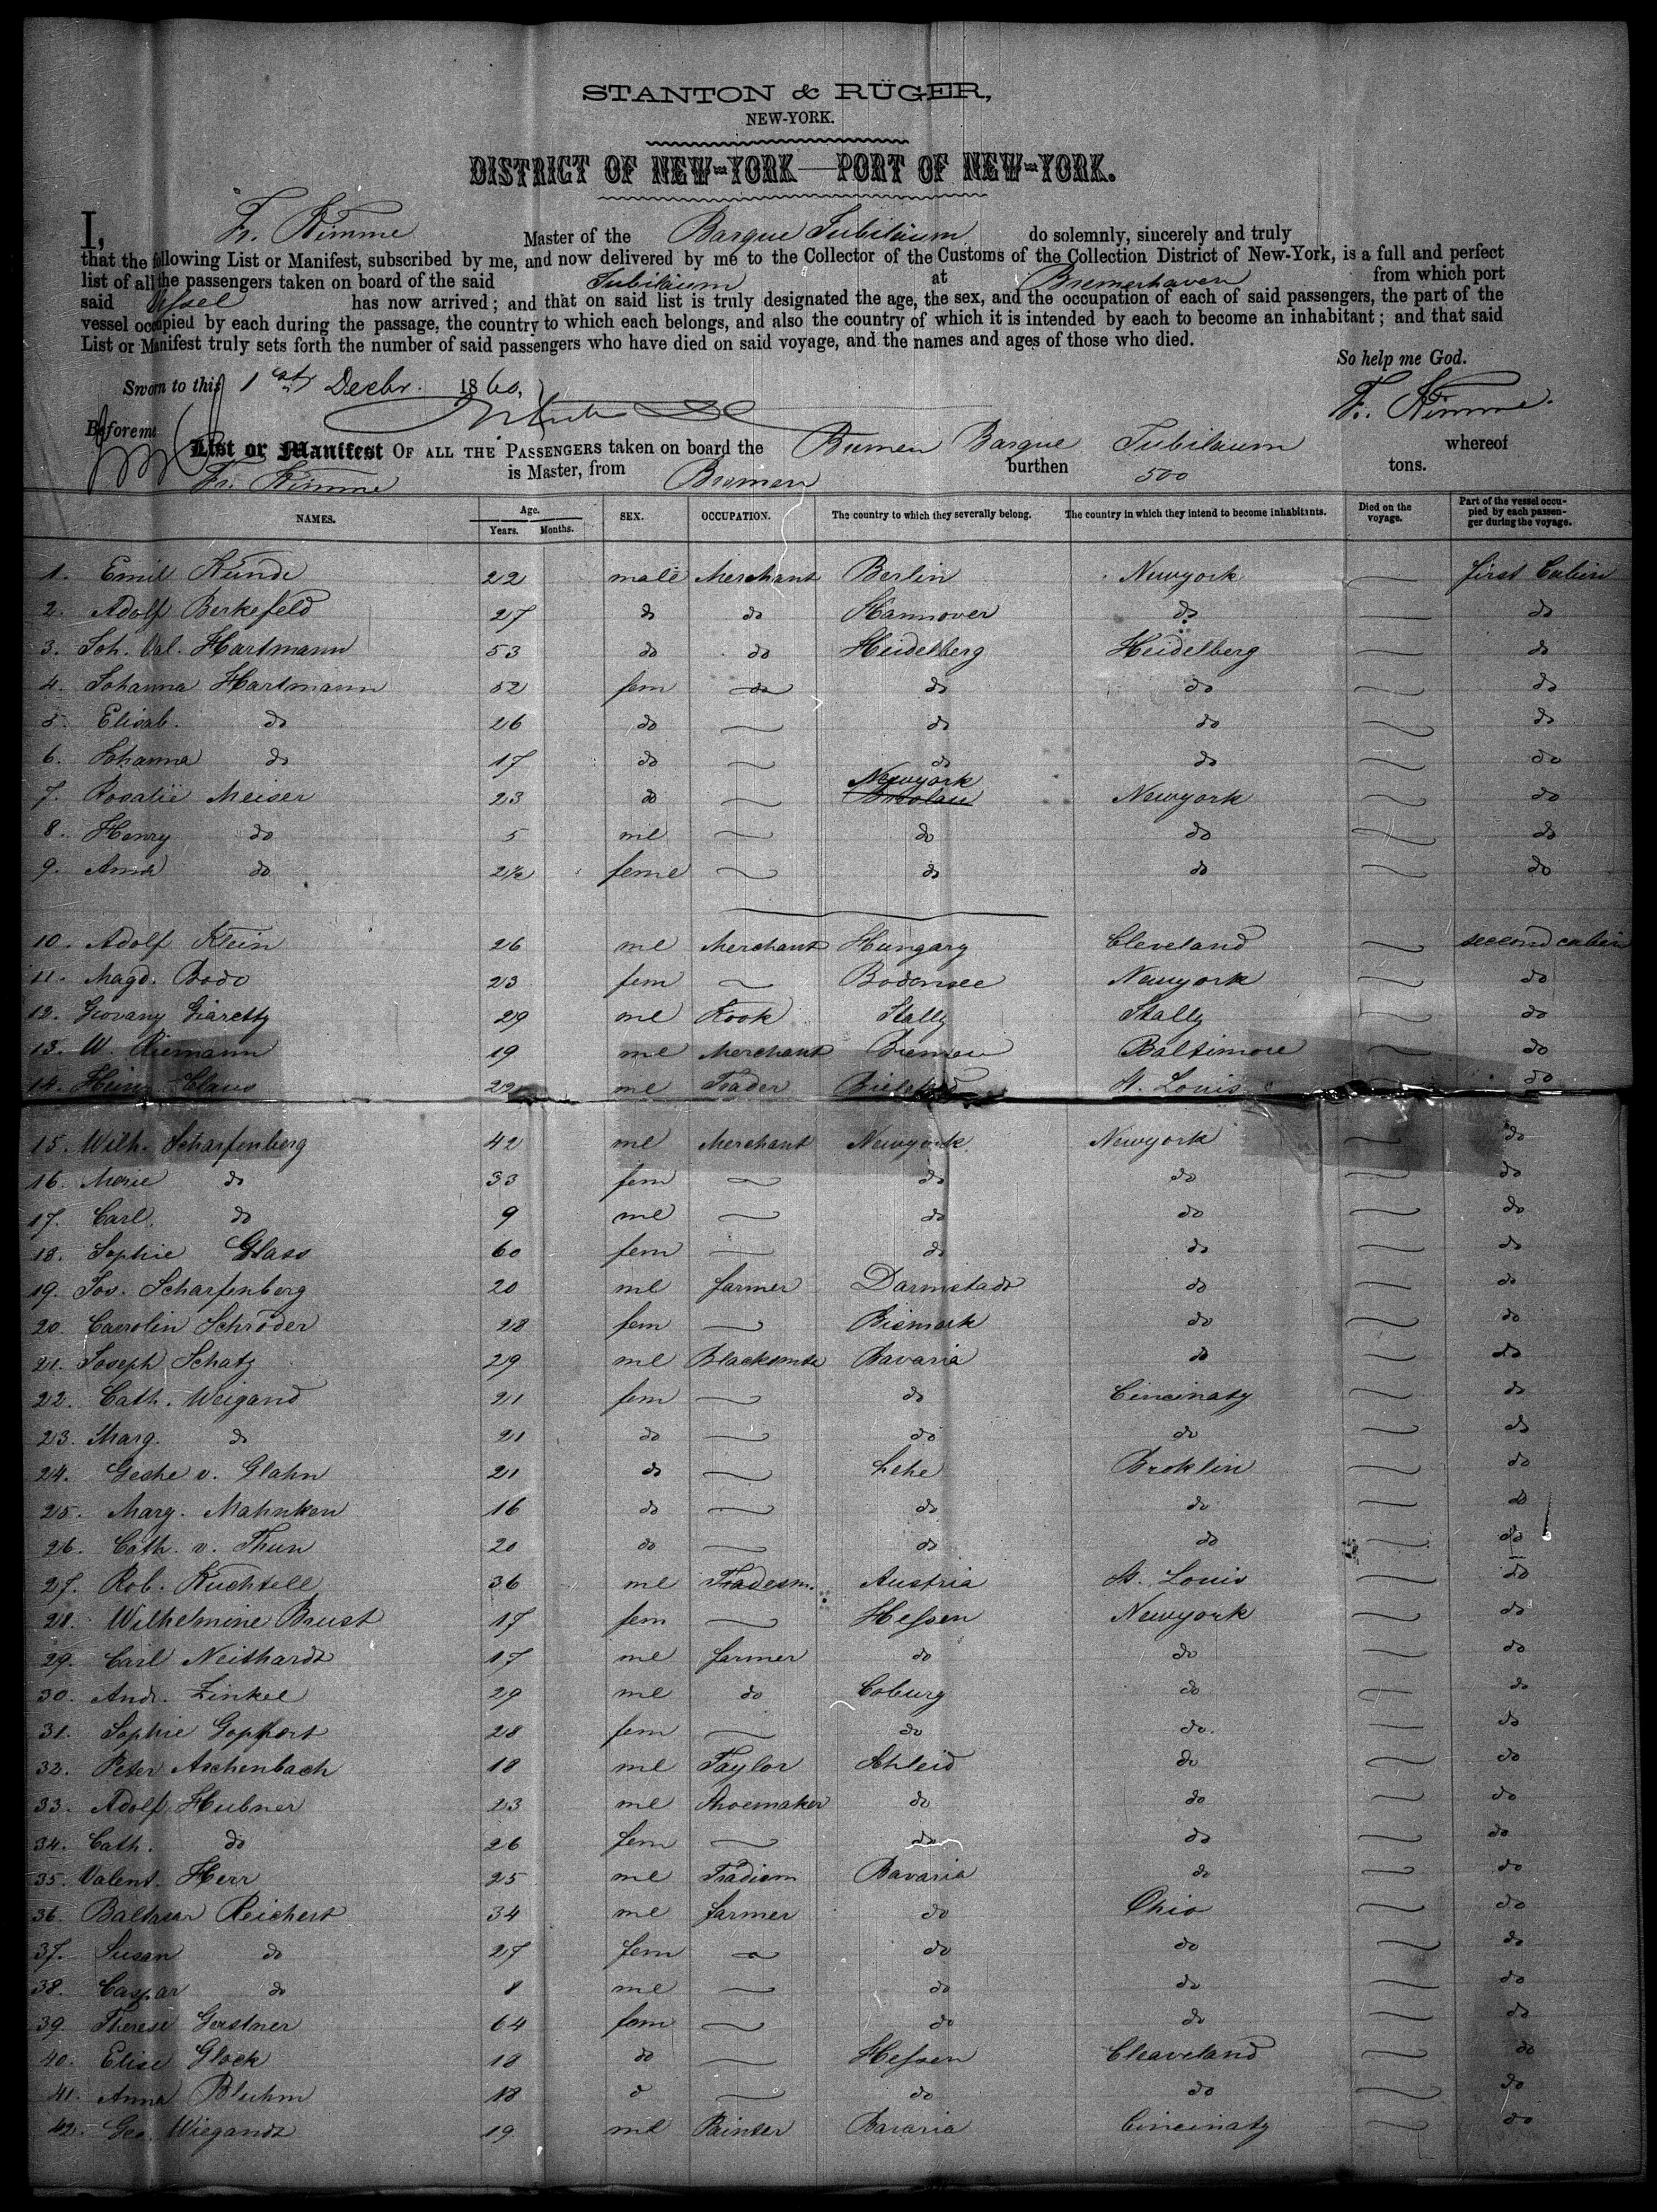 STANTON & RÜGER,
NEW-YORK.
DISTRICT OF NEW-YORK—PORT OF NEW-YORK.
I, Fr. Kimme Master of the Barque Jubiläum do solemnly, sincerely and truly
that the following List or Manifest, subscribed by me, and now delivered by me to the Collector of the Customs of the Collection District of New-York, is a full and perfect
list of all the passengers taken on board of the said Jubiläum at Bremerhaven from which port
said Vessel has now arrived; and that on said list is truly designated the age, the sex, and the occupation of each of said passengers, the part of the
vessel occupied by each during the passage, the country to which each belongs, and also the country of which it is intended by each to become an inhabitant; and that said
List or Manifest truly sets forth the number of said passengers who have died on said voyage, and the names and ages of those who died.
So help me God.
Sworn to this 1st Decbr. 1860,
Fr. Kimme.
Before me
List or Manifest OF ALL THE PASSENGERS taken on board the Bremen Barque Jubilaum whereof
Fr. Kimme is Master, from Bremen burthen 500 tons.
NAMES. Age. Years. Months. SEX. OCCUPATION. The country to which they severally belong. The country in which they intend to become inhabitants. Died on the voyage. Part of the vessel occupied by each passenger during the voyage.
1. Emil Kunde 22 male Merchant Berlin Newyork — first Cabin
2. Adolf Berkefeld 27 do do Hannover do — do
3. Joh. Val. Hartmann 53 do do Heidelberg Heidelberg — do
4. Johanna Hartmann 52 fem do do do — do
5. Elisab. do 26 do — do do — do
6. Johanna do 17 do — do do — do
7. Rosalie Meiser 23 do — Newyork Newyork — do
8. Henry do 5 ml — do do — do
9. Anna do 2½ feml — do do — do
10. Adolf Klein 26 ml Merchant Hungary Cleveland — second cabin
11. Magd. Bodo 23 fem — Bodensee Newyork — do
12. Giovany Giaretty 29 ml Kook Itally Itally — do
13. W. Riemann 19 ml Merchant Bremen Baltimore — do
14. Heinr. Claus 29 ml Trader Bielefeld St. Louis — do
15. Wilh. Scharfenberg 42 ml Merchant Newyork Newyork — do
16. Marie do 33 fem — do do — do
17. Carl. do 9 ml — do do — do
18. Sophie Glass 60 fem — do do — do
19. Jos. Scharfenberg 20 ml farmer Darmstadt do — do
20. Caerolin Schröder 28 fem — Bismark do — do
21. Joseph Schatz 29 ml Blacksmite Bavaria do — do
22. Cath. Weigand 21 fem — do Cincinaty — do
23. Marg. do 21 do — do do — do
24. Gesche v. Glahn 21 do — Lehe Broklin — do
25. Marg. Mahnken 16 do — do do — do
26. Cath. v. Thun 20 do — do do — do
27. Rob. Kuchtell 36 ml Tradesm. Austria St. Louis — do
28. Wilhelmine Brust 17 fem — Hessen Newyork — do
29. Carl Neithardt 17 ml farmer do do — do
30. Andr. Zinkel 29 ml do Coburg do — do
31. Sophie Gopfert 28 fem — do do. — do
32. Peter Aschenbach 18 ml Taylor Schleid do — do
33. Adolf Hubner 23 ml Shoemaker do do — do
34. Cath. do 26 fem — do do — do
35. Valent. Herr 25 ml Tradism Bavaria do — do
36. Baltasar Reichert 34 ml farmer do Ohio — do
37. Susan do 27 fem — do do — do
38. Caspar do 1 ml — do do — do
39. Therese Gerstner 64 fem — do do — do
40. Elise Glock 18 do — Hessen Cleaveland — do
41. Anna Bluhm 18 d — do do — do
42. Geo. Wiegandt 19 ml Painter Bavaria Cincinaty — do